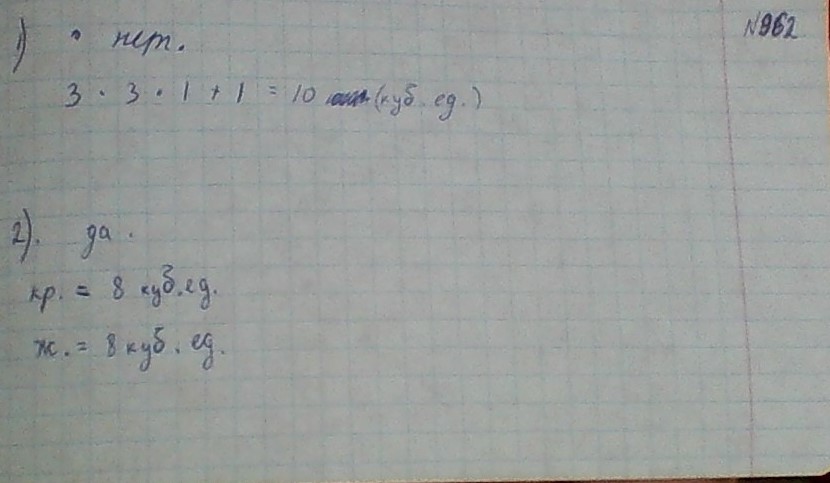 №962
1) нет.
3 · 3 · 1 + 1 = 10 (куб. ед.)
2). да.
кр. = 8 куб.ед.
ж. = 8 куб. ед.